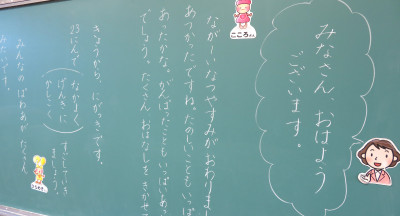 みなさん、おはよう
ございます。
ながーいなつやすみがおわりまし
あつかったですね。たのしいこともいっぱ
あったかな。がんばったこともいっぱいあっ
でしょう。たくさんおはなしをきかせて
きょうから、にがっきです。
23にんで
なかよく
げんきに
かしこく
すごしていき
ましょう。
みんなのぱわあが たくさん
みたいです。
こころさん